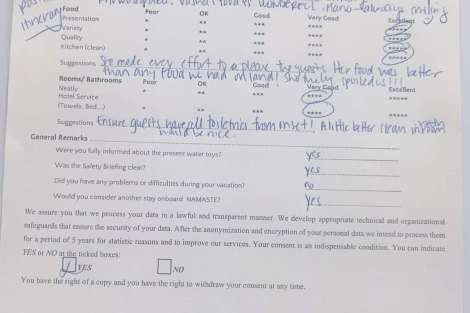 itinerary
Food Poor OK Good Very Good Excellent
Presentation * ** *** **** *****
Variety * ** *** **** *****
Quality * ** *** **** *****
Kitchen (clean) * ** *** **** *****
Suggestions She made every effort to please the guests. Her food was better
than any food we had on land! She truly spoiled us!!!
Rooms/ Bathrooms Poor OK Good Very Good Excellent
Neatly * ** *** **** *****
Hotel Service
(Towels, Bed...) * ** *** **** *****
Suggestions Ensure guests have all toiletries from onset! A little better clean in
would be nice.
General Remarks
Were you fully informed about the present water toys? yes
Was the Safety Briefing clear? yes
Did you have any problems or difficulties during your vacation? no
Would you consider another stay onboard NAMASTE? yes
We assure you that we process your data in a lawful and transparent manner. We develop appropriate technical and organizational
safeguards that ensure the security of your data. After the anonymization and encryption of your personal data we intend to process them
for a period of 5 years for statistic reasons and to improve our services. Your consent is an indispensable condition. You can indicate
YES or NO at the ticked boxes:
YES NO
You have the right of a copy and you have the right to withdraw your consent at any time.